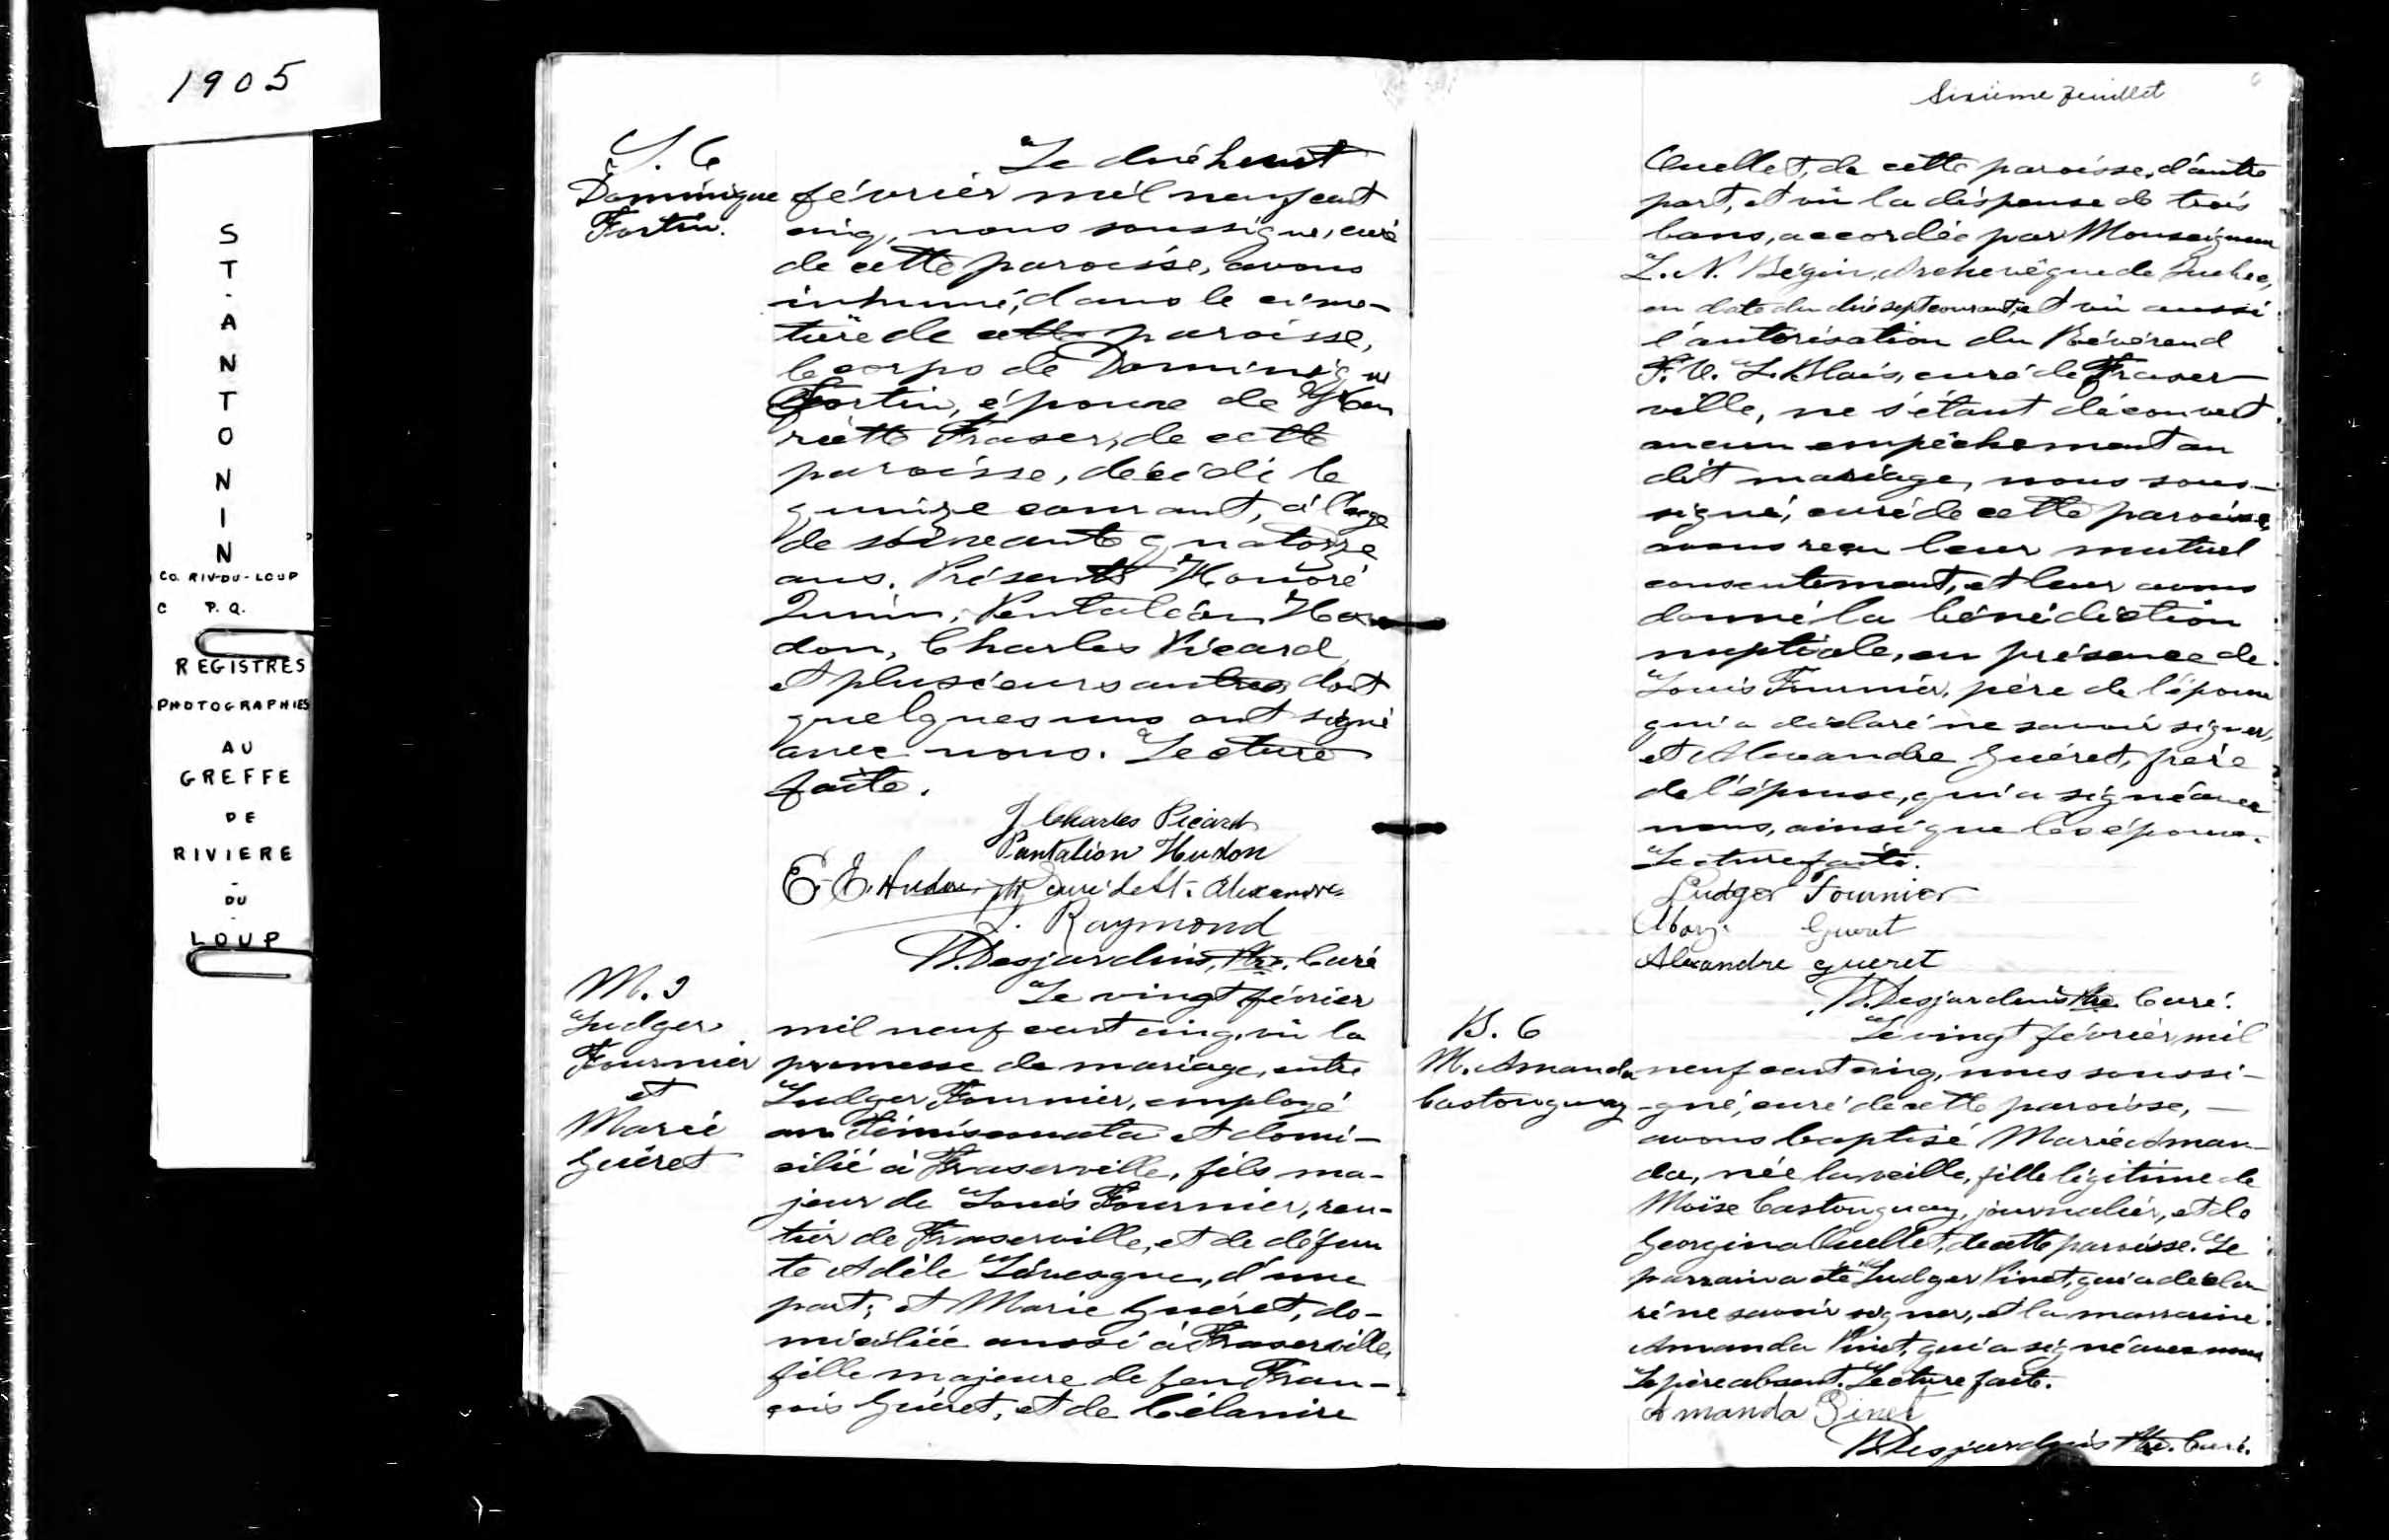 1905
ST. ANTONIN
CO. RIV-DU-LOUP
C P.Q.
REGISTRES
PHOTOGRAPHIES
AU
GREFFE
DE
RIVIERE
-
DU
-
LOUP
S. 6
Dominique
Fortin.
Le dixhuit
février mil neuf cent
cinq, nous soussigné, curé
de cette paroisse, avons
inhumé, dans le cime-
tière de cette paroisse,
le corps de Dominique
Fortin, époux de Hen
riette Fraser, de cette
paroisse, décédé le
quinze courant, à l'age
de soixante quatorze
ans. Présents Honoré
Pantaléon Hu
don, Charles Picard
et plusieurs autres dont
quelques uns ont signé
avec nous. Lecture
faite.
J Charles Picard
Pantaléon Hudon
E. E. Hudon, ptre curé de St. Alexandre
J. Raymond
N. Desjardins, Ptre. Curé
M. 2
Ludger
Fournier
et
Marie
Guéret
Le vingt février
mil neuf cent cinq, vu la
promesse de mariage, entre
Ludger Fournier, employé
au Témiscouata et domi-
cilié à Fraserville, fils ma-
jeur de Louis Fournier, ren-
tier de Fraserville, et de défun
te Adèle Lévesque, d'une
part; et Marie Guéret, do-
miciliée aussi à Fraserville,
fille majeure de feu Fran-
çois Guéret, et de Célanire
Sixième feuillet
6
Ouellet, de cette paroisse, d'autre
part, et vu la dispense de trois
bans, accordée par Monseigneur
L. N. Bégin, Archevêque de Quebec,
en date du dixsept courant, et vu aussi
l'autorisation du Révérend
F. X. L. Blais, curé de Fraser-
ville, ne s'étant découvert
aucun empêchement au
dit mariage, nous sous-
signé, curé de cette paroisse,
avons reçu leur mutuel
consentement, et leur avons
donné la bénédiction
nuptiale, en présence de
Louis Fournier, père de l'époux
qui a déclaré ne savoir signer,
et Alexandre Guéret, frère
de l'épouse, qui a signé avec
nous, ainsi que les époux.
Lecture faite.
Ludger Fournier
Mary Gueret
Alexandre Gueret
N. Desjardins Ptre Curé.
B. 6
M. Amanda
Castonguay
Le vingt février mil
neuf cent cinq, nous soussi-
gné, curé de cette paroisse, -
avons baptisé Marie Aman-
da, née la veille, fille légitime de
Moïse Castonguay, journalier, et de
Georgina Ouellet, de cette paroisse. Le
parrain a été Ludger Pinet, qui a décla
ré ne savoir signer, et la marraine
Amanda Pinet, qui a signé avec nous
Le père absent. Lecture faite.
Amanda Pinet
N. Desjardins Ptre. Curé.